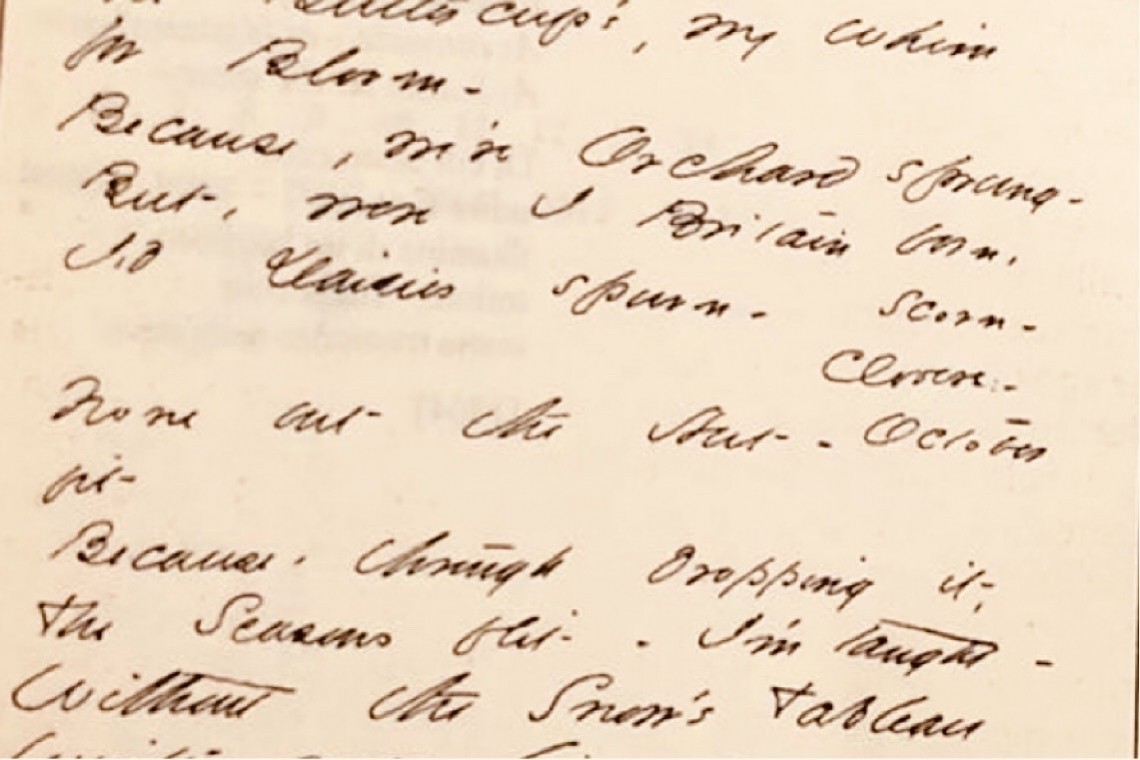 Buttercup's, my Whim
for Bloom -
Because, we're Orchard sprung -
But, were I Britain born,
I'd Daisies spurn - scorn -
Clovers -
None but the Nut - October
fit -
Because, through dropping it,
The Seasons flit - I'm taught -
Without the Snow's Tableau